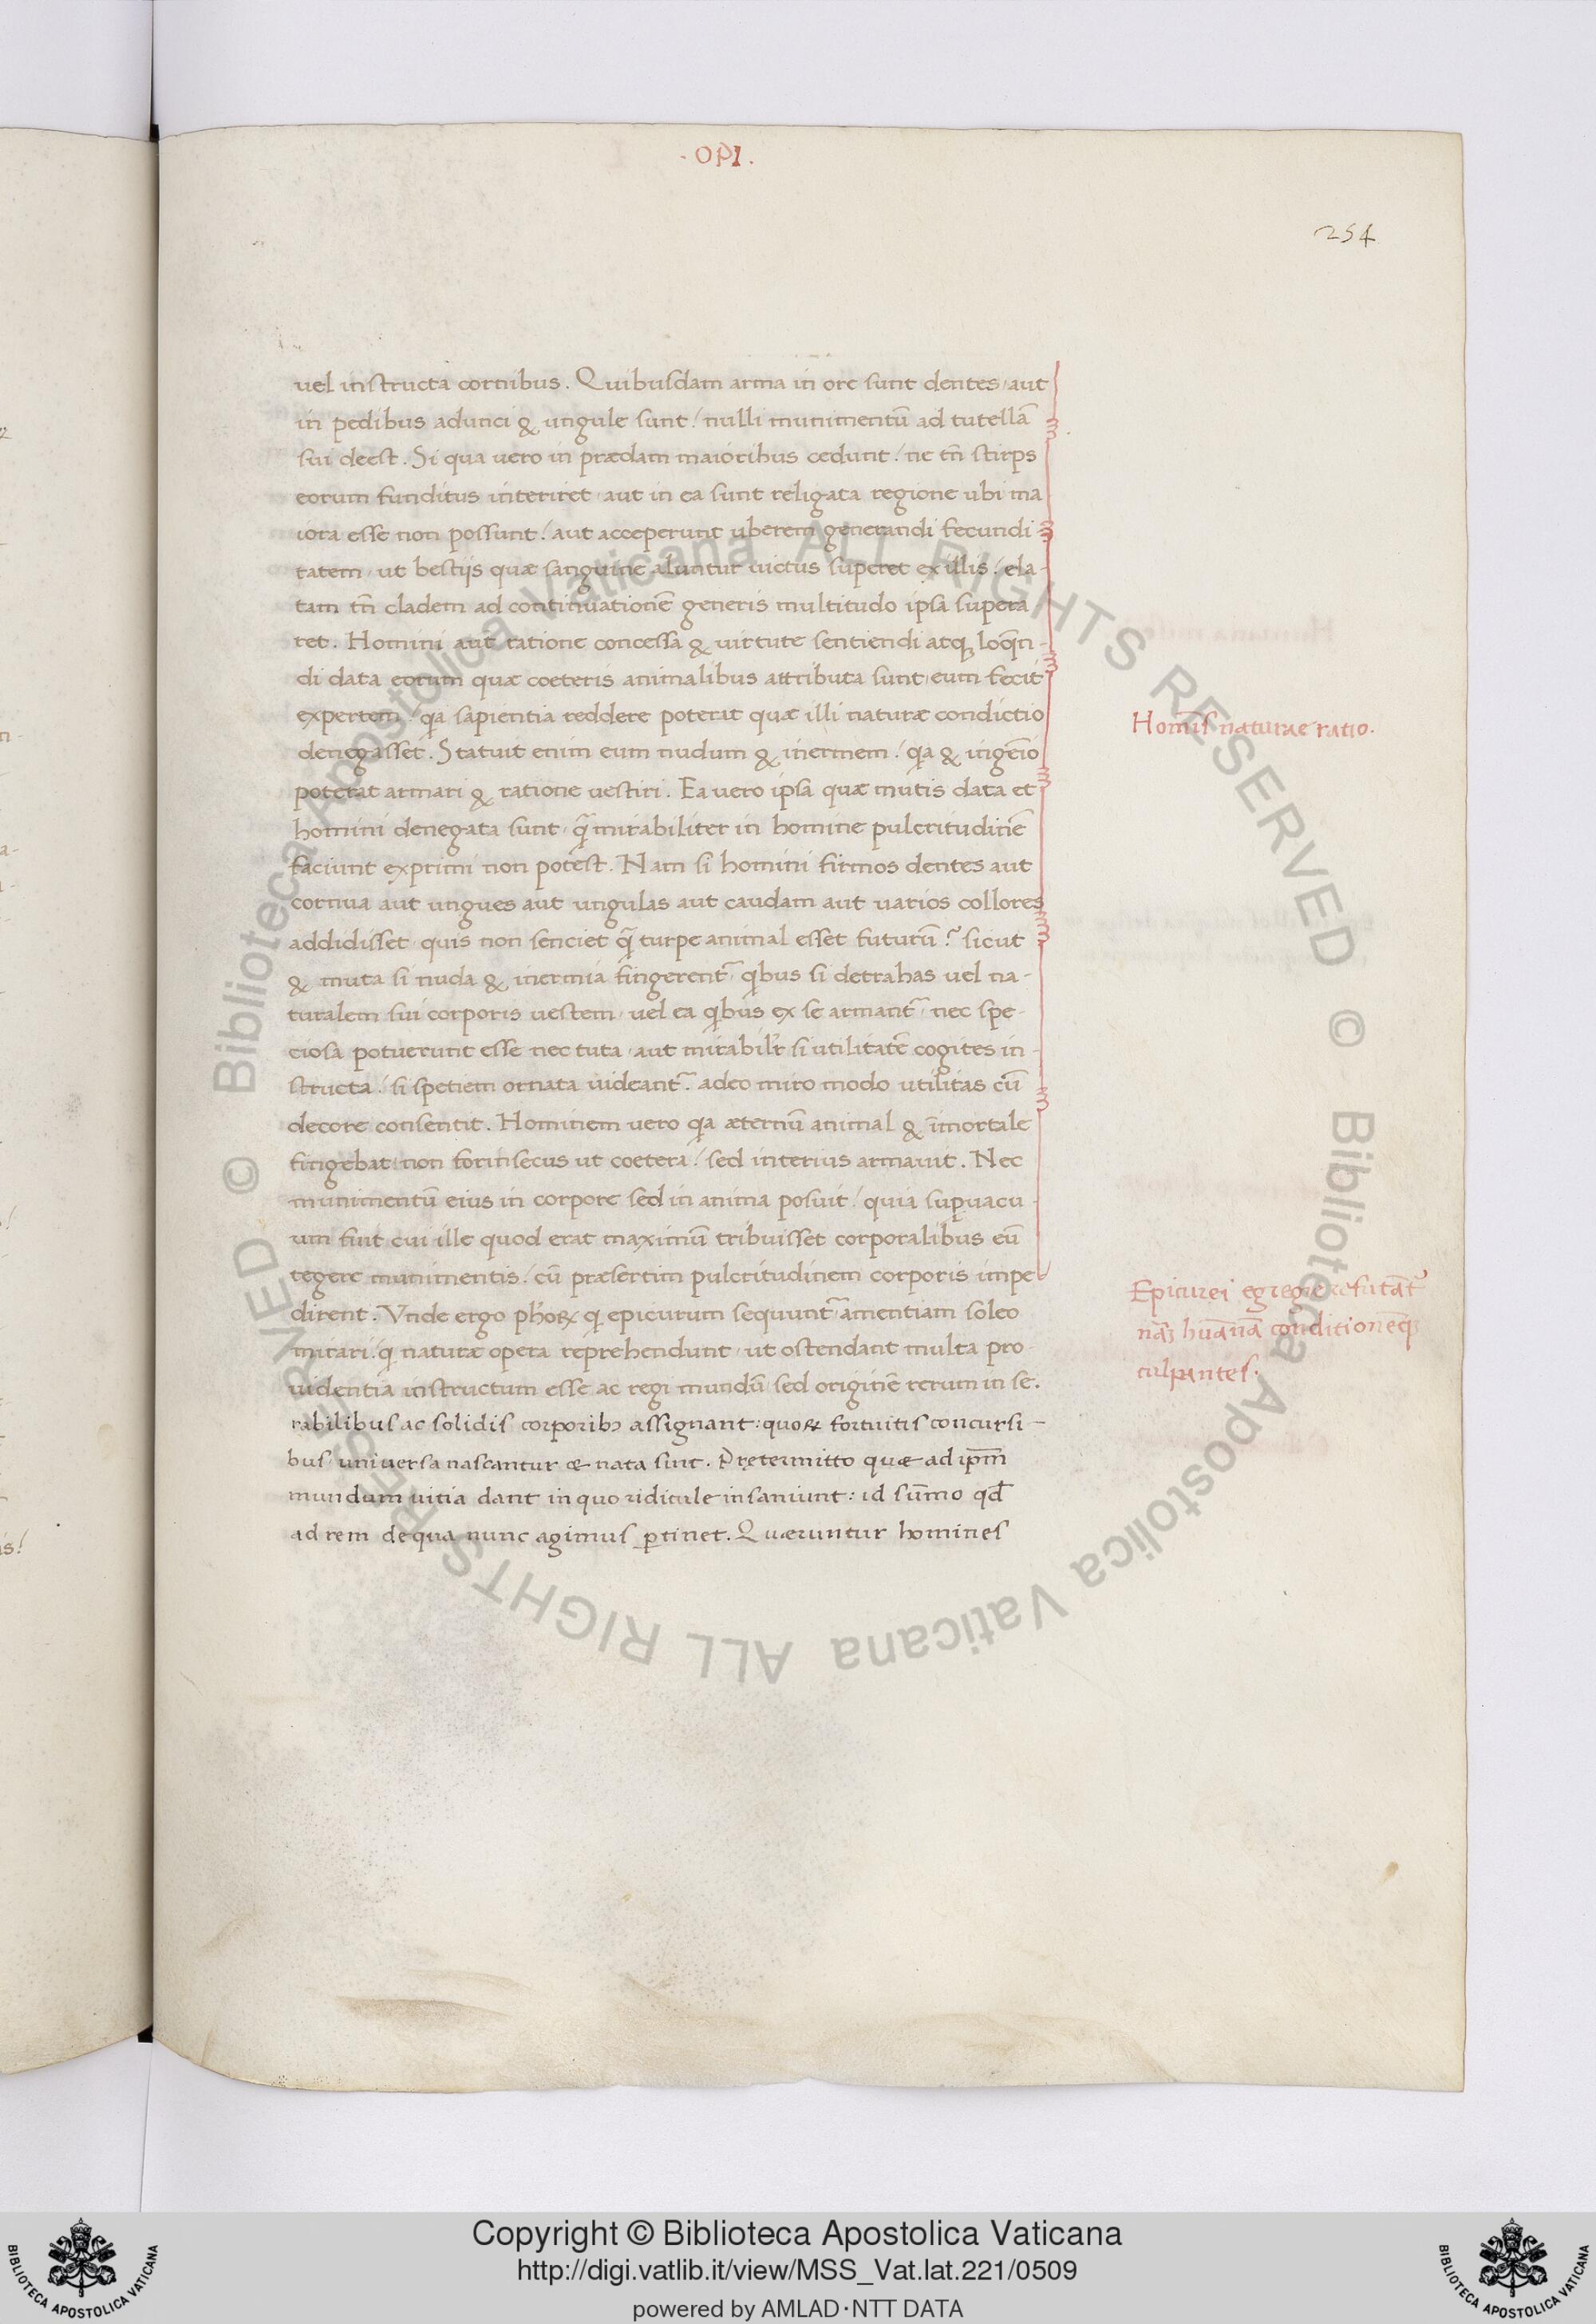 · OPI .
254
uel instructa cornibus. Quibusdam arma in ore sunt dentes, aut
in pedibus adunci & ungule sunt / nulli munimentū ad tutellā
sui deest. Si qua uero in prædam maioribus cedunt / ne tn̄ stirps
eorum funditus interiret, aut in ea sunt religata regione ubi ma
iora esse non possunt / aut acceperunt uberem generandi fecundi-
tatem, ut bestijs quæ sanguine aluntur uictus superet ex illis / ela-
tam tn̄ cladem ad continuationē generis multitudo ipsa supera
ret. Homini aut̄ ratione concessa & uirtute sentiendi atq; loq̄n-
di data eorum quæ coeteris animalibus attributa sunt, eum fecit
expertem / qa sapientia reddere poterat quæ illi naturæ condictio
denegasset. Statuit enim eum nudum & inermem / qa & ingenio
poterat armari & ratione uestiri. Ea uero ipsa quæ mutis data et
homini denegata sunt, q̄ mirabiliter in homine pulcritudinē
faciunt exprimi non potest. Nam si homini firmos dentes aut
cornua aut ungues aut ungulas aut caudam aut uarios collores
addidisset, quis non senciet q̄ turpe animal esset futurū? sicut
& muta si nuda & inermia fingerent᷑, qbus si detrahas uel na-
turalem sui corporis uestem, uel ea qbus ex se armant᷑, nec spe-
ciosa potuerunt esse nec tuta, aut mirabilr̄ si utilitatē cogites in-
structa / si spetiem ornata uideant᷑. adeo miro modo utilitas cū
decore consentit. Hominem uero qa æternū animal & īmortale
fingebat, non forinsecus ut coetera / sed interius armauit. Nec
munimentū eius in corpore sed in anima posuit / quia supuacu-
um fuit cui ille quod erat maximū tribuisset corporalibus eū
tegere munimentis / cū præsertim pulcritudinem corporis impe
dirent. Vnde ergo ph̄oꝝ q epicurum sequunt᷑ amentiam soleo
mirari / q naturæ opera reprehendunt, ut ostendant multa pro
uidentia instructum esse ac regi mundū, sed originē rerum in se.
rabilibus ac solidis corporibꝫ assignant: quoꝝ fortuitis concursi-
bus uniuersa nascantur & nata sint. Prętermitto quæ ad ip̄m
mundum uitia dant in quo ridicule insaniunt: id sūmo qđ
ad rem de qua nunc agimus ꝑtinet. Quæruntur homines
Homīs naturae ratio.
Epicurei egregie refutāt᷑
nāȝ huānā conditioneq̄
culpantes.
Copyright © Biblioteca Apostolica Vaticana
http://digi.vatlib.it/view/MSS_Vat.lat.221/0509
powered by AMLAD·NTT DATA
BIBLIOTECA APOSTOLICA VATICANA
BIBLIOTECA APOSTOLICA VATICANA
© Biblioteca Apostolica Vaticana ALL RIGHTS RESERVED © Biblioteca Apostolica Vaticana ALL RIGHTS RESERVED